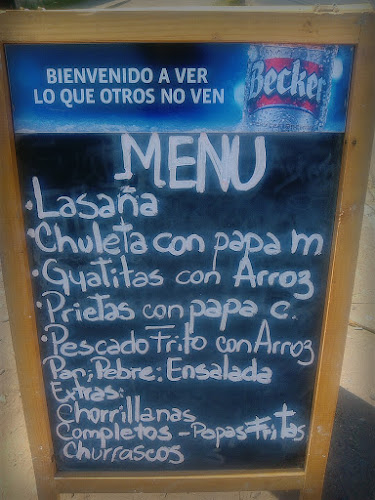 BIENVENIDO A VER
LO QUE OTROS NO VEN
Becker
MENU
·Lasaña
·Chuleta con papa m
·Guatitas con Arroz
·Prietas con papa c.
·Pescado Frito con Arroz
Pan, Pebre. Ensalada
Extras:
Chorrillanas
Completos - Papas Fritas
Churrascos